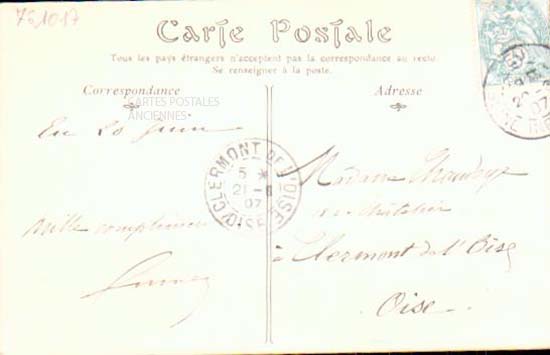 761017
Carte Postale
Tous les pays étrangers n'acceptent pas la correspondance au recto.
Se renseigner à la poste.
Correspondance
Adresse
CARTES POSTALES
ANCIENNES
En 20 Juin
CLERMONT DE L'OISE (OISE)
5 *
21 - 6
07
Madame
Mille compliments
à Clermont de l'Oise
Oise
20 - 6
07